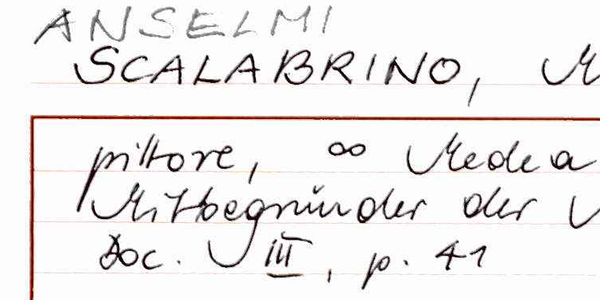 ANSELMI
SCALABRINO, M
pittore, ∞ Medea
Mitbegründer der V
Doc. VIII, p. 41